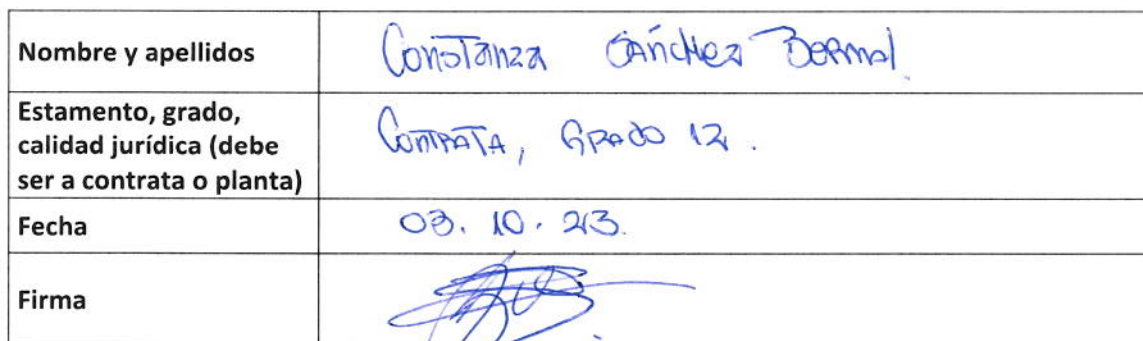 Nombre y apellidos
Constanza Sánchez Bernal.
Estamento, grado,
calidad jurídica (debe
ser a contrata o planta)
CONTRATA, GRADO 12.
Fecha
03.10.23.
Firma